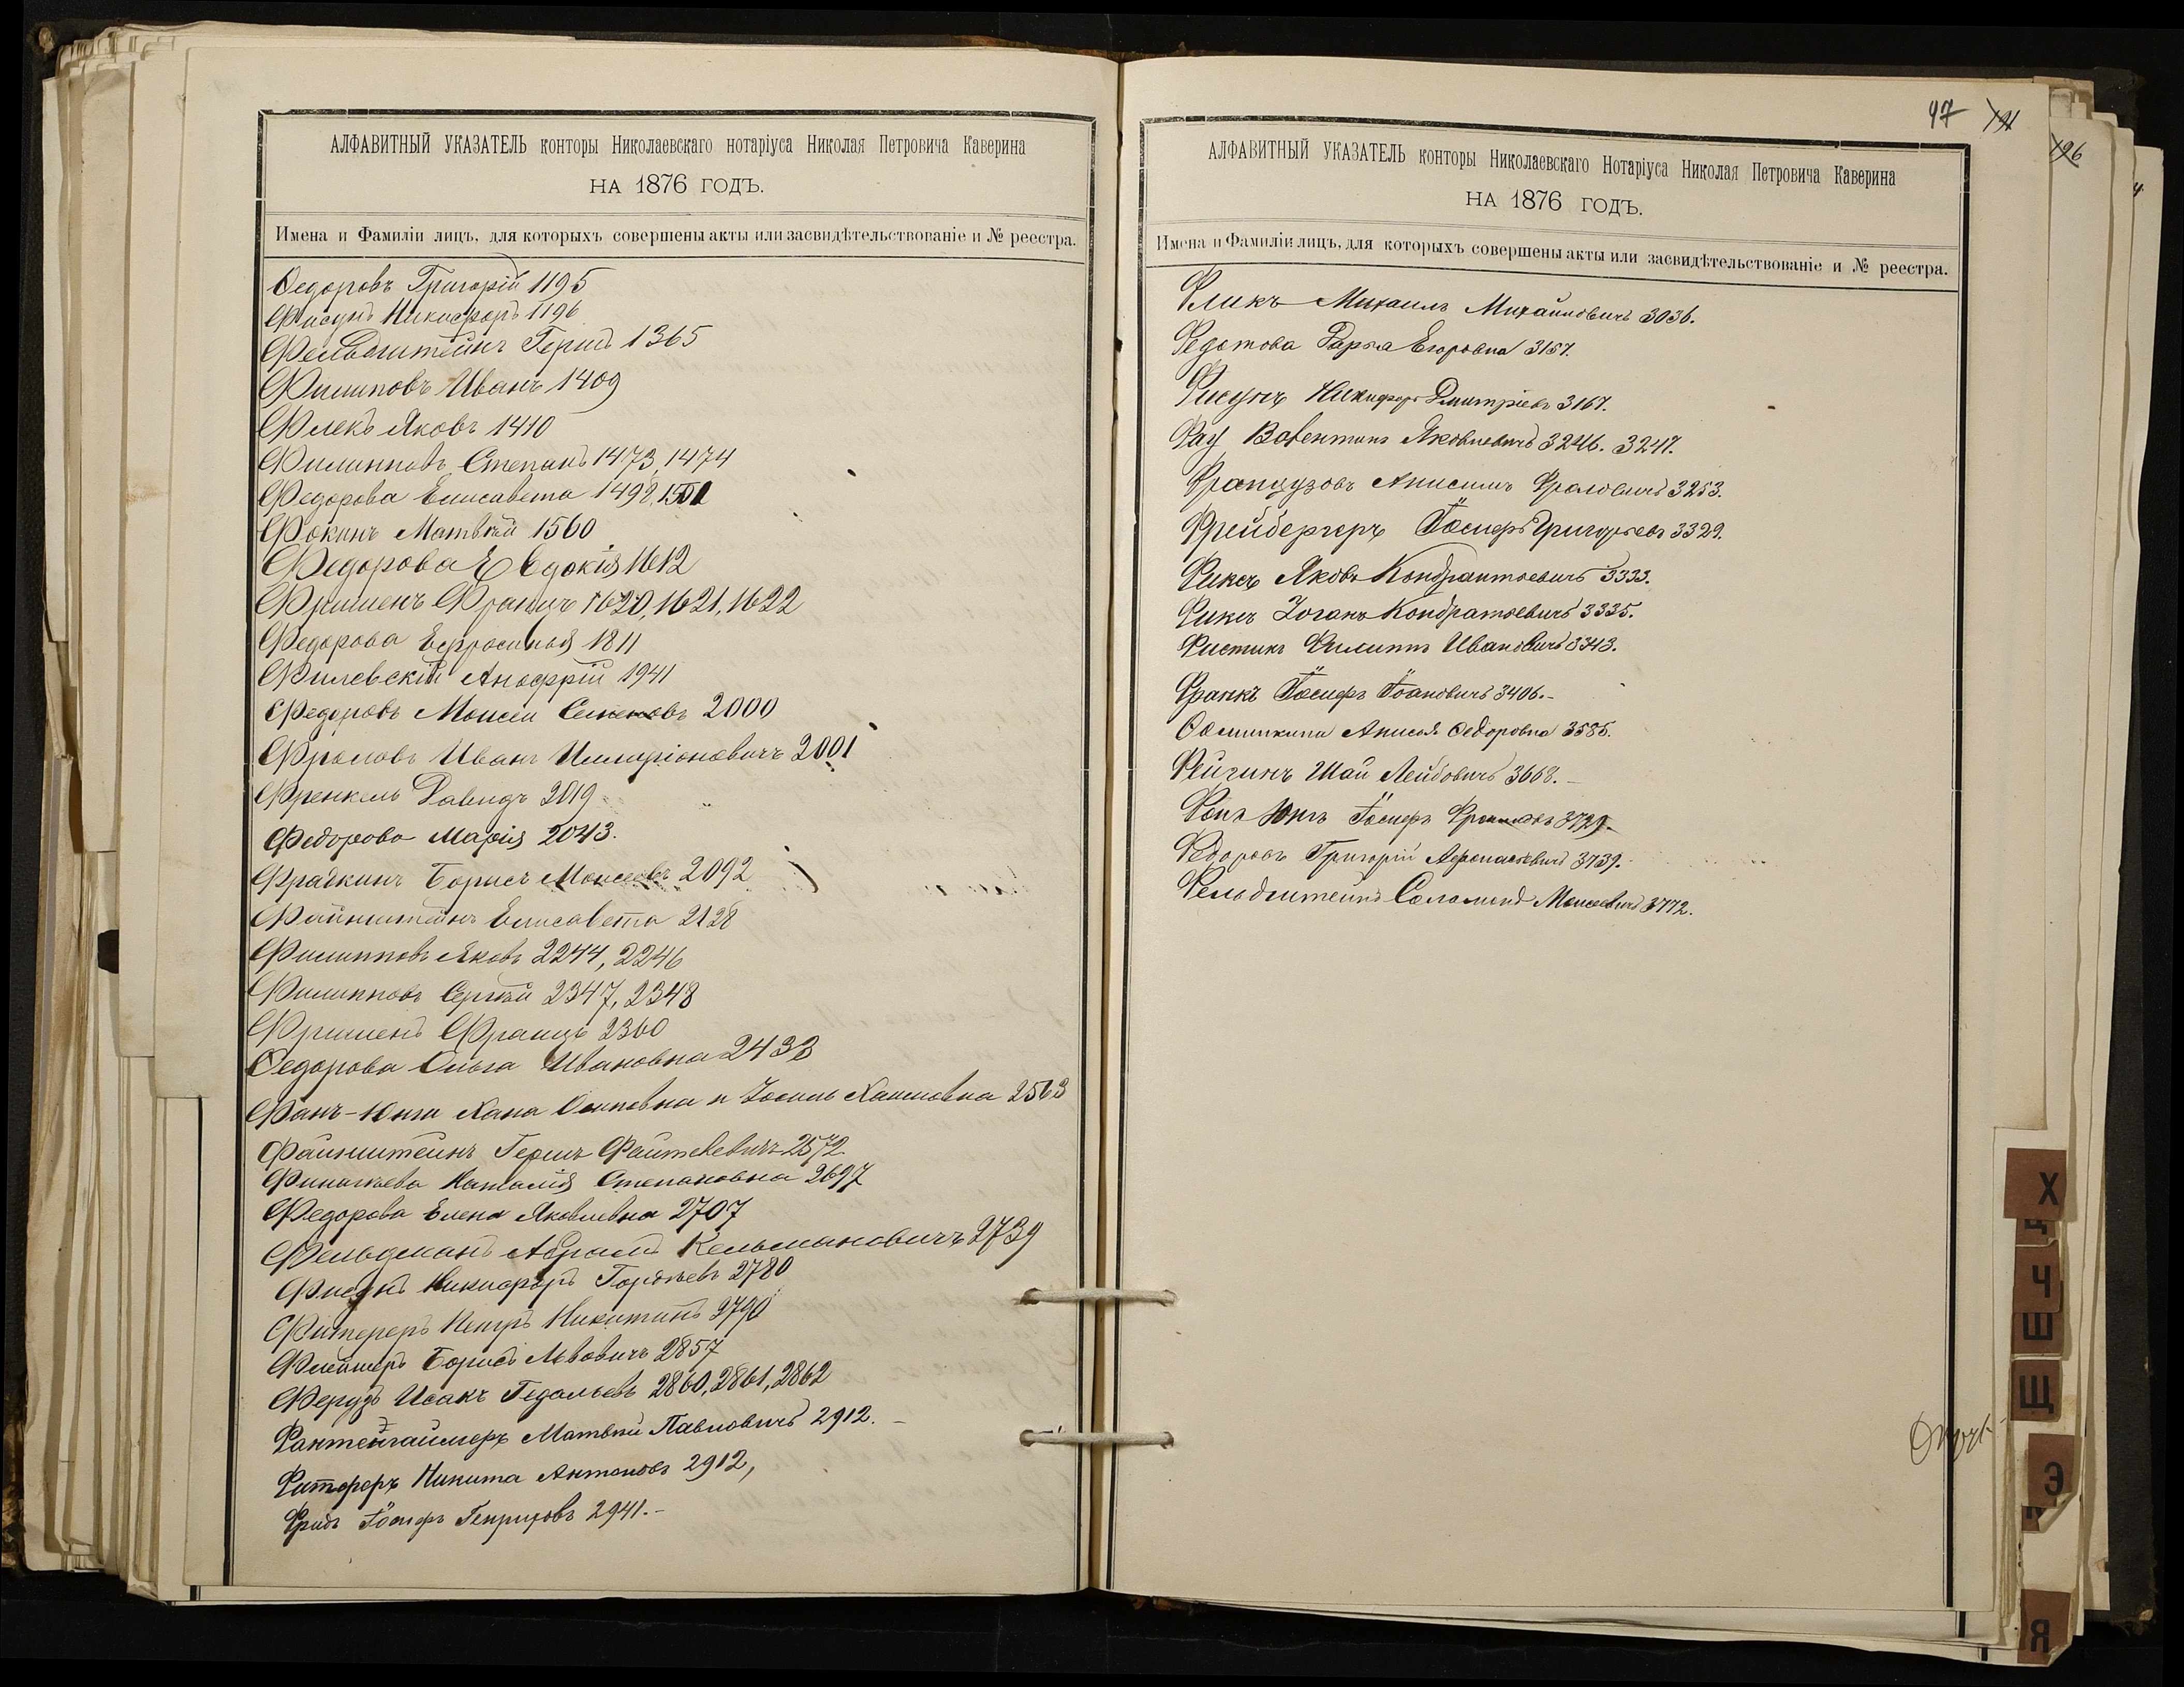 АЛФАВИТНЫЙ УКАЗАТЕЛЬ конторы Николаевскаго нотаріуса Николая Петровича Каверина
НА 1876 ГОДЪ.
Имена и Фамиліи лицъ, для которыхъ совершены акты или засвидѣтельствованіе и № реестра.
Ѳедоровъ Григорій 1195
Фисунъ Никифоръ 1196
Фельдштейнъ Гершъ 1365
Филиповъ Иванъ 1409
Флекъ Яковъ 1410
Филипповъ Степанъ 1473, 1474
Федорова Елисавета 1492, 1501
Фокинъ Матвѣй 1560
Федорова Евдокія 1612
Фришенъ Францъ 1620, 1621, 1622
Федорова Ефросинья 1811
Филевскій Анофрій 1941
Федоровъ Моисей Семеновъ 2000
Фроловъ Иванъ Илларіоновичъ 2001
Френкель Давидъ 2019
Федорова Марія 2043.
Фрадкинъ Борисъ Моисеевъ 2092
Файнштейнъ Елисавета 2128
Филипповъ Яковъ 2244, 2246
Филипповъ Сергѣй 2347, 2348
Фришенъ Францъ 2360
Ѳедорова Ольга Ивановна 2433
Фанъ-Юнги Хана Осиповна и Хаимовна 2563
Файнштейнъ Гершъ Файтелевичъ 2572
Наталія Степановна 2697
Федорова Елена Яковлевна 2707
Фельдманъ Абрамъ Кельмановичъ 2739
Фисунъ Никифоръ Гордѣевъ 2780
Фитереръ Петръ Никитинъ 2790
Флейшеръ Борисъ Львовичъ 2857
Ферудъ Исакъ Гедальевъ 2860, 2861, 2862
Матвѣй Павловичъ 2912.
Никита Антоновъ 2912,
Фридъ Іосифъ Генриховъ 2941.-
97 191
196
АЛФАВИТНЫЙ УКАЗАТЕЛЬ конторы Николаевскаго Нотаріуса Николая Петровича Каверина
НА 1876 ГОДЪ.
Имена и Фамиліи лицъ, для которыхъ совершены акты или засвидѣтельствованіе и № реестра.
Фликъ Михаилъ Михайловичъ 3036.
Федотова Дарья Егоровна 3157.
Фисунъ Никифоръ Дмитріевъ 3167.
Фау Валентинъ Яковлевичъ 3246. 3247.
Французовъ Анисимъ Фроловичъ 3253.
Фрейбергеръ Іосифъ Григорьевъ 3329.
Фиксъ Яковъ Кондратьевичъ 3333.
Фиксъ Іоганъ Кондратьевичъ 3335.
Фистикъ Филиппъ Ивановичъ 3343.
Франкъ Іосифъ Іоановичъ 3406.-
Анисья Ѳедоровна 3585.
Фейгинъ Шая Лейбовичъ 3668.-
Фонъ Юнгъ Іосифъ 3729.
Федоровъ Григорій Афонасьевичъ 3739.
Фельдштейнъ Соломонъ Моисеевичъ 3772.
Х
Ц
Ч
Ш
Щ
Э
Я